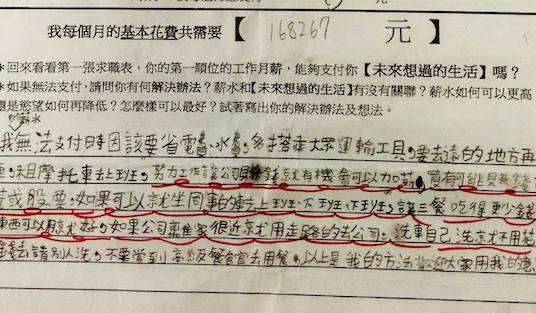 我每個月的基本花費共需要【 168267 元 】
*回來看看第一張求職表，你的第一順位的工作月薪，能夠支付你【未來想過的生活】嗎？
*如果無法支付，請問你有何解決辦法？薪水和【未來想過的生活】有沒有關聯？薪水如何可以更高
還是慾望如何再降低？怎麼樣可以最好？試著寫出你的解決辦法及想法。
我無法支付時因該要省電費、水費，多搭乘大眾運輸工具，要去遠的地方再
租摩托車去上班，努力工作讓公司賺錢就有機會可以加薪，買有可能賺錢
或股票，如果可以就坐同事的車去上班、下班，讓三餐吃得更少錢
東西可以用就好，如果公司離家很近就用走路的去公司，洗車自己洗就不用花
錢請別人洗，不要常到高級餐館去用餐，以上是我的方法歡迎大家用我的